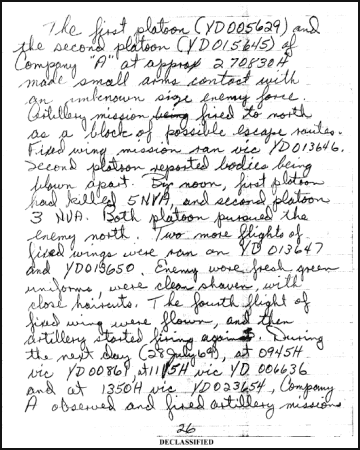 The first platoon (YD005629) and
the second platoon (YD015645) of
Company "A" at approx 270830H
made small arms contact with
an unknown size enemy force.
Artillery mission being fired to north
as a block of possible escape routes.
Fixed wing mission ran vic YD013646.
Second platoon reported bodies being
blown apart. By noon, first platoon
had killed 5 NVA, and second platoon
3 NVA. Both platoon pursued the
enemy north. Two more flights of
fixed wings were ran on YD 013647
and YD015650. Enemy wore fresh green
uniforms, were clean shaven, with
close haircuts. The fourth flight of
fixed wing were flown, and then
artillery started firing again. During
the next day (28 July 69), at 0945H
vic YD00861, at 1115H vic YD 006636
and at 1350H vic YD023654, Company
A observed and fired artillery missions
26
DECLASSIFIED